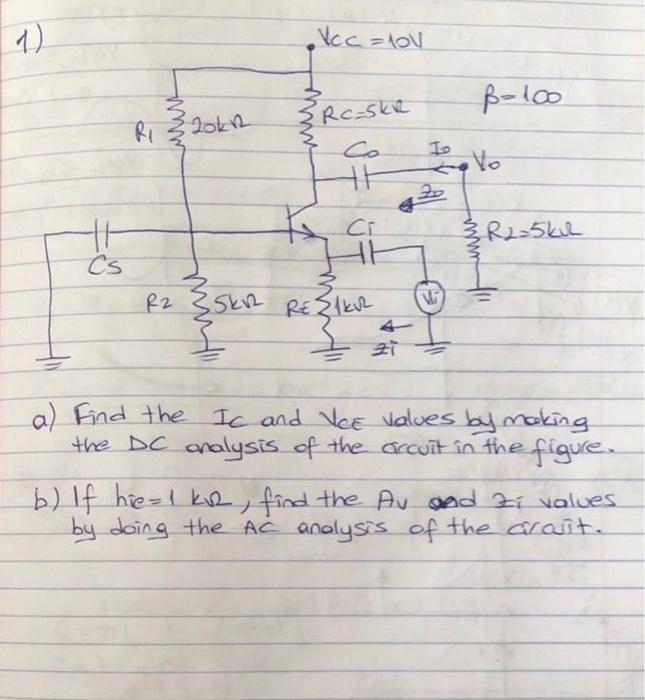 1)
VCC = 10V
β=100
R1
20kΩ
RC=5kΩ
Co
Io
Vo
Zo
Cs
Ci
RL=5kΩ
R2
5kΩ
RE
1kΩ
Vi
Zi
a) Find the IC and VCE values by making
the DC analysis of the circuit in the figure.
b) If hie=1 kΩ, find the Av and Zi values
by doing the AC analysis of the circuit.